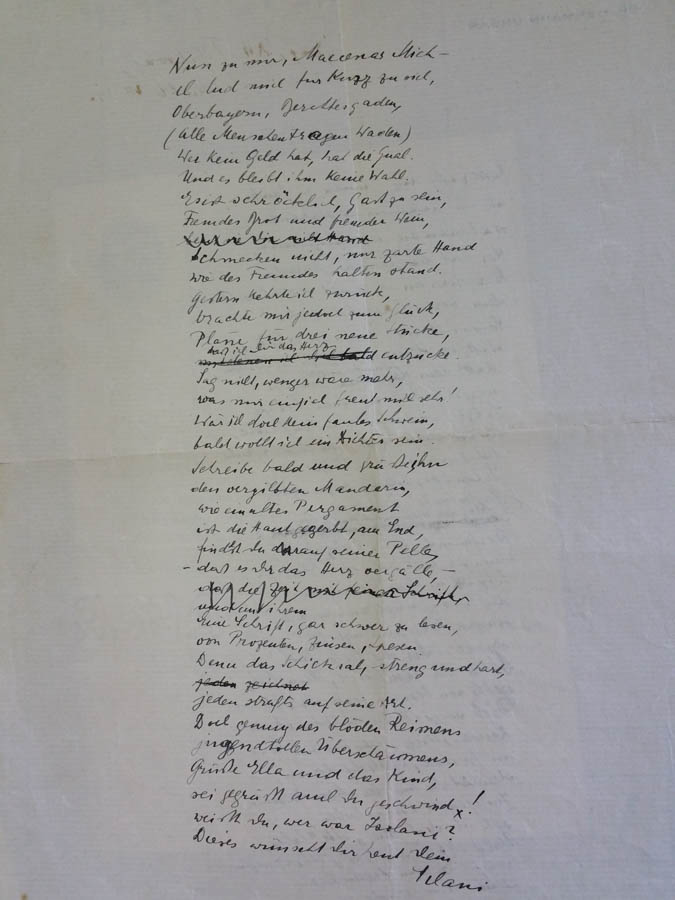 Nun zu mir, Maecenas Mich –
el lud mich fur Kurz zu sich,
Oberbayern, Berchtesgaden,
(Alle Menschen tragen Waden)
Wer kein Geld hat, hat die Qual.
Und es bleibt ihm keine Wahl.
Es ist schröcklich, Gast zu sein,
Fremdes Brot und fremder Wein,
Schmecken nicht, nur zarte Hand
wie des Freundes halten stand.
Gestern kehrte ich zurück,
brachte mir jedoch zum Glück,
Pläne für drei neue Stücke,
daß ich dir das Herz
entzücke.
Sag nicht, wenger wäre mehr,
was nur einfiel freut mich sehr!
Wär ich doch kein faules Schwein,
bald wollt ich ein Dichter sein.
Schreibe bald und grüß Dighn
den vergilbten Mandarin,
wie ein altes Pergament
ist die Haut gegerbt, am End,
findest Du darauf seiner Pelle,
– daß es dir das Herz vergälle, –
eine Schrift, gar schwer zu lesen,
von Prozenten, Zinsen, Spesen.
Denn das Schicksal, streng und hart,
jeden zeichnet
jeden straft's auf seine Art.
Doch genung des blöden Reimens
jugendtollen Überschäumens,
Grüße Ella und das Kind,
sei gegrüßt auch Du geschwind x!
weißt Du, wer war Isolani?
Dieses wünscht Dir heut Dein